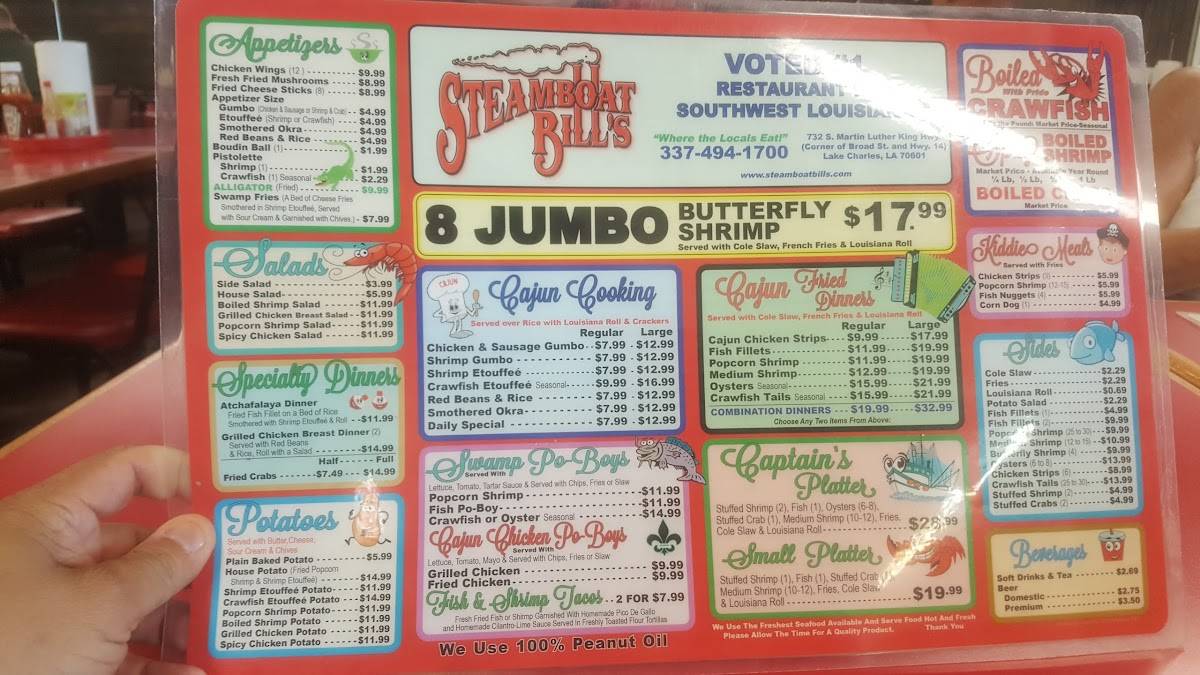 Appetizers
Chicken Wings (12) $9.99
Fresh Fried Mushrooms $8.99
Fried Cheese Sticks (8) $8.99
Appetizer Size
Gumbo (Chicken & Sausage or Shrimp & Crab) $4.99
Etouffeé (Shrimp or Crawfish) $4.99
Smothered Okra $4.99
Red Beans & Rice $4.99
Boudin Ball (1) $1.99
Pistolette
Shrimp (1) $1.99
Crawfish (1) Seasonal $2.29
ALLIGATOR (Fried) $9.99
Swamp Fries (A Bed of Cheese Fries
Smothered in Shrimp Etouffeé, Served
with Sour Cream & Garnished with Chives.) - $7.99
Salads
Side Salad $3.99
House Salad $5.99
Boiled Shrimp Salad $11.99
Grilled Chicken Breast Salad $11.99
Popcorn Shrimp Salad $11.99
Spicy Chicken Salad $11.99
Specialty Dinners
Atchafalaya Dinner
Fried Fish Fillet on a Bed of Rice
Smothered with Shrimp Etouffeé & Roll $11.99
Grilled Chicken Breast Dinner (2)
Served with Red Beans
& Rice, Roll with a Salad $14.99
Half Full
Fried Crabs $7.49 $14.99
Potatoes
Served with Butter, Cheese,
Sour Cream & Chives
Plain Baked Potato $5.99
House Potato (Fried Popcorn
Shrimp & Shrimp Etouffeé) $14.99
Shrimp Etouffeé Potato $11.99
Crawfish Etouffeé Potato $14.99
Popcorn Shrimp Potato $11.99
Boiled Shrimp Potato $11.99
Grilled Chicken Potato $11.99
Spicy Chicken Potato $11.99
STEAMBOAT
BILL'S
VOTED #1
RESTAURANT
SOUTHWEST LOUISIA
"Where the Locals Eat!"
337-494-1700
732 S. Martin Luther King Hwy
(Corner of Broad St. and Hwy. 14)
Lake Charles, LA 70601
www.steamboatbills.com
8 JUMBO BUTTERFLY SHRIMP $17.99
Served with Cole Slaw, French Fries & Louisiana Roll
CAJUN
Cajun Cooking
Served over Rice with Louisiana Roll & Crackers
Regular Large
Chicken & Sausage Gumbo $7.99 - $12.99
Shrimp Gumbo $7.99 - $12.99
Shrimp Etouffeé $7.99 - $12.99
Crawfish Etouffeé Seasonal $9.99 - $16.99
Red Beans & Rice $7.99 - $12.99
Smothered Okra $7.99 - $12.99
Daily Special $7.99 - $12.99
Swamp Po-Boys
Served With
Lettuce, Tomato, Tartar Sauce & Served with Chips, Fries or Slaw
Popcorn Shrimp $11.99
Fish Po-Boy $11.99
Crawfish or Oyster Seasonal $14.99
Cajun Chicken Po-Boys
Served With
Lettuce, Tomato, Mayo & Served with Chips, Fries or Slaw
Grilled Chicken $9.99
Fried Chicken $9.99
Fish & Shrimp Tacos 2 FOR $7.99
Fresh Fried Fish or Shrimp Garnished With Homemade Pico De Gallo
and Homemade Cilantro-Lime Sauce Served In Freshly Toasted Flour Tortillas
We Use 100% Peanut Oil
Cajun Fried Dinners
Served with Cole Slaw, French Fries & Louisiana Roll
Regular Large
Cajun Chicken Strips $9.99 $17.99
Fish Fillets $11.99 $19.99
Popcorn Shrimp $11.99 $19.99
Medium Shrimp $12.99 $19.99
Oysters Seasonal $15.99 $21.99
Crawfish Tails Seasonal $15.99 $21.99
COMBINATION DINNERS $19.99 $32.99
Choose Any Two Items From Above:
Captain's Platter
Stuffed Shrimp (2), Fish (1), Oysters (6-8),
Stuffed Crab (1), Medium Shrimp (10-12), Fries,
Cole Slaw & Louisiana Roll .99
Small Platter
Stuffed Shrimp (1), Fish (1), Stuffed Crab
Medium Shrimp (10-12), Fries, Cole Slaw
& Louisiana Roll $19.99
We Use The Freshest Seafood Available And Serve Food Hot And Fresh
Please Allow The Time For A Quality Product. Thank You
Boiled
With Pride
CRAWFISH
the Pound: Market Price-Seasonal
BOILED
SHRIMP
Market Price - Year Round
¼ Lb, ½ Lb, 1 Lb
BOILED
Market Price
Kiddie Meals
Served with Fries
Chicken Strips (3) $5.99
Popcorn Shrimp (12-15) $5.99
Fish Nuggets (4) $5.99
Corn Dog (1) $4.99
Sides
Cole Slaw $2.29
Fries $2.29
Louisiana Roll $0.69
Potato Salad $2.29
Fish Fillets (1) $4.99
Fish Fillets (2) $9.99
Popcorn Shrimp (25 to 30) $9.99
Medium Shrimp (12 to 15) $10.99
Butterfly Shrimp (4) $9.99
Oysters (6 to 8) $13.99
Chicken Strips (6) $8.99
Crawfish Tails (25 to 30) $13.99
Stuffed Shrimp (2) $4.99
Stuffed Crabs (2) $4.99
Beverages
Soft Drinks & Tea $2.69
Beer
Domestic $2.75
Premium $3.50